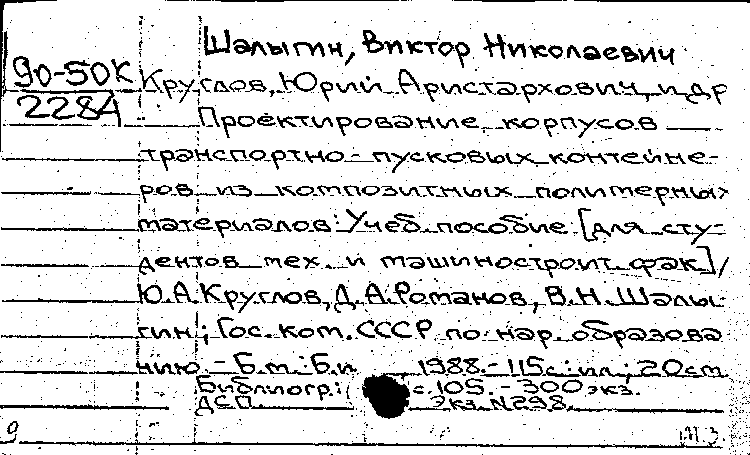 Шалыгин, Виктор Николаевич
90-50К Круглов, Юрий Аристархович, и др
2284 Проектирование корпусов
транспортно-пусковых контейне-
ров из композитных полимерных
материалов: Учеб. пособие [для сту-
дентов мех. и машиностроит. фак]/
Ю.А.Круглов, Д.А.Романов, В.Н.Шалы-
гин; Гос. ком. СССР по нар. образова
нию. - Б.м.: Б.и 1988. - 115с.: ил.; 20см
Библиогр.: с. 105. - 300 экз.
ДСП. Экз. N298.
9 М.З.